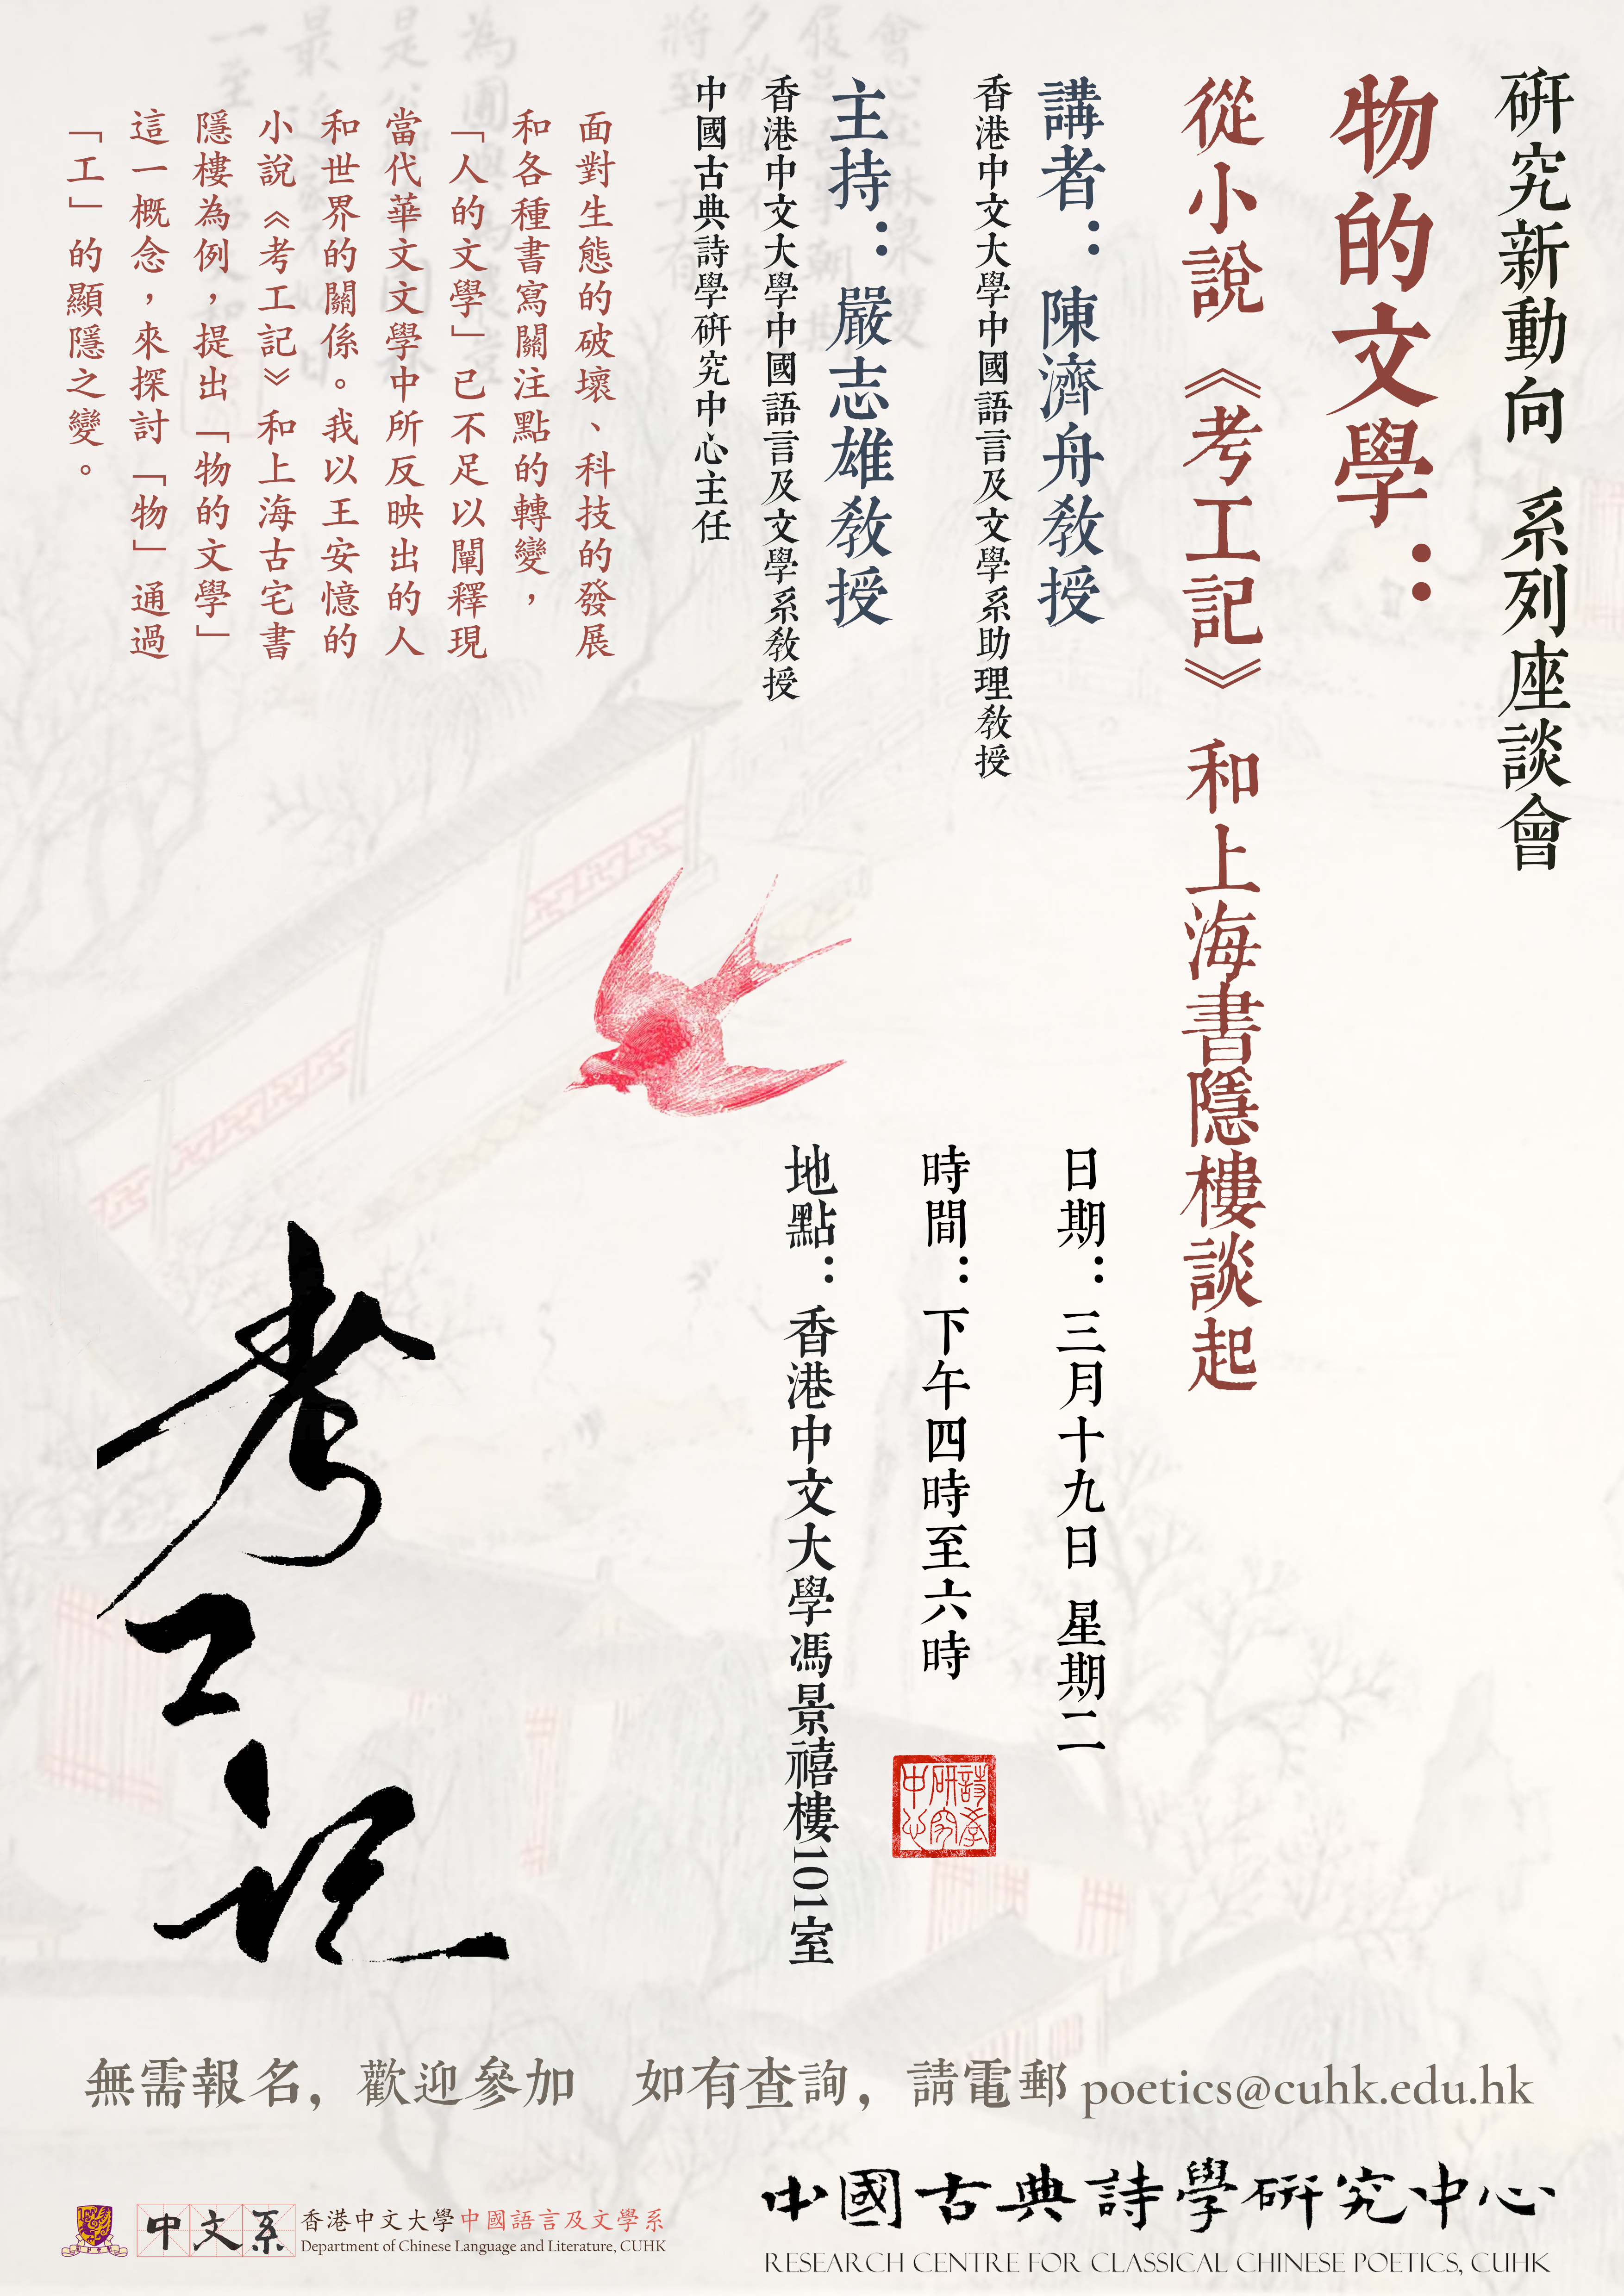 研究新動向 系列座談會
物的文學：
從小說《考工記》和上海書隱樓談起
講者：陳濟舟教授
香港中文大學中國語言及文學系助理教授
主持：嚴志雄教授
香港中文大學中國語言及文學系教授
中國古典詩學研究中心主任
面對生態的破壞、科技的發展
和各種書寫關注點的轉變，
「人的文學」已不足以闡釋現
當代華文文學中所反映出的人
和世界的關係。我以王安憶的
小說《考工記》和上海古宅書
隱樓為例，提出「物的文學」
這一概念，來探討「物」通過
「工」的顯隱之變。
日期：三月十九日 星期二
時間：下午四時至六時
地點：香港中文大學馮景禧樓101室
詩學研究中心
考工記
無需報名，歡迎參加 如有查詢，請電郵 poetics@cuhk.edu.hk
中文系
香港中文大學中國語言及文學系
Department of Chinese Language and Literature, CUHK
中國古典詩學研究中心
RESEARCH CENTRE FOR CLASSICAL CHINESE POETICS, CUHK